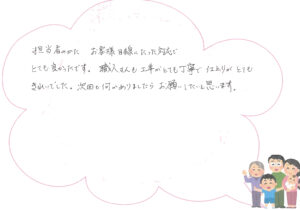 担当者のかた お客様目線にたった対応で
とても良かったです。職人さんも工事がとても丁寧で仕上りがとても
きれいでした。次回も何かありましたらお願いしたいと思います。